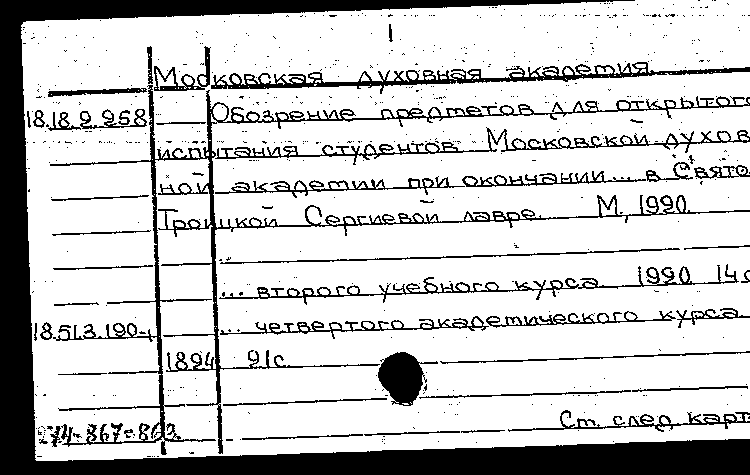 Московская духовная академия.
18.18.9.958 Обозрение предметов для открытого
испытания студентов Московской духов
ной академии при окончании... в Свято
Троицкой Сергиевой лавре. М., 1990.
... второго учебного курса. 1990 14с
18.51.3.190 ... четвертого академического курса
1894 91с.
См. след. карт